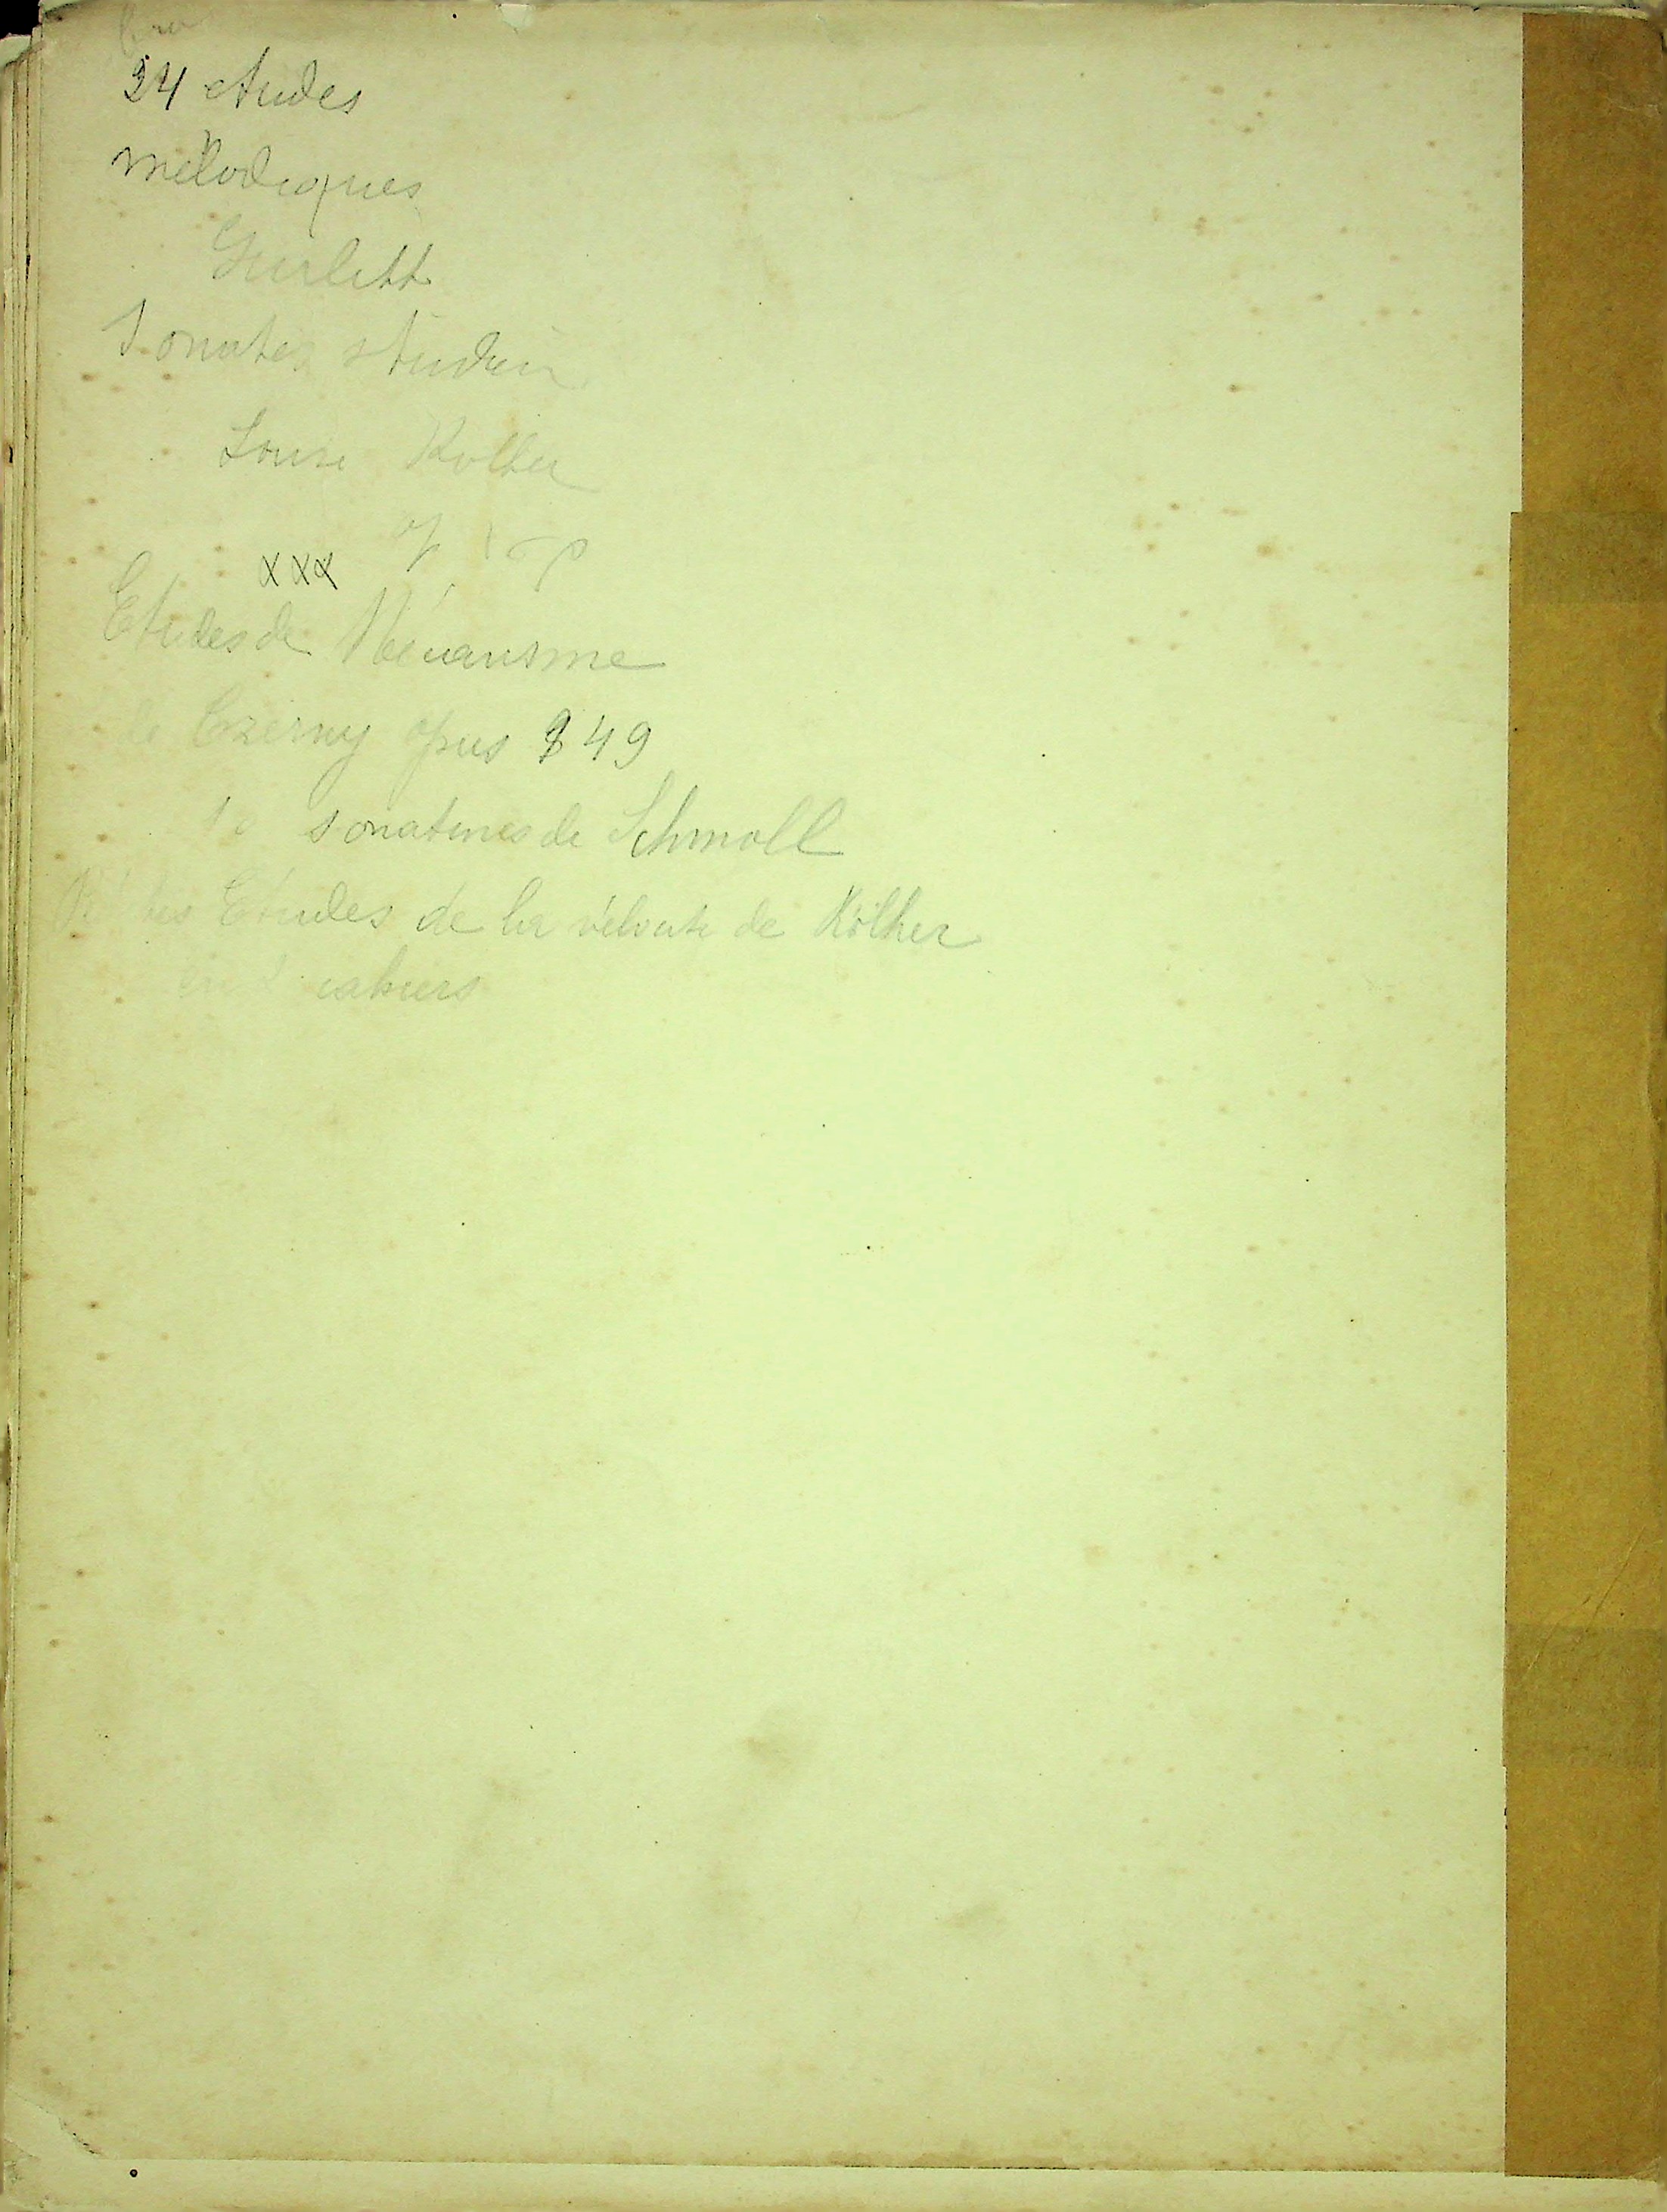 24 etudes
mélodiques
Gurlitt
Sonates studien
Louis Kolher
op
xxx
Etudes de Mécanisme
de Czerny opus 849
10 sonatines de Schmoll
Etudes de la vélouté de Kölher
en 2 cahiers